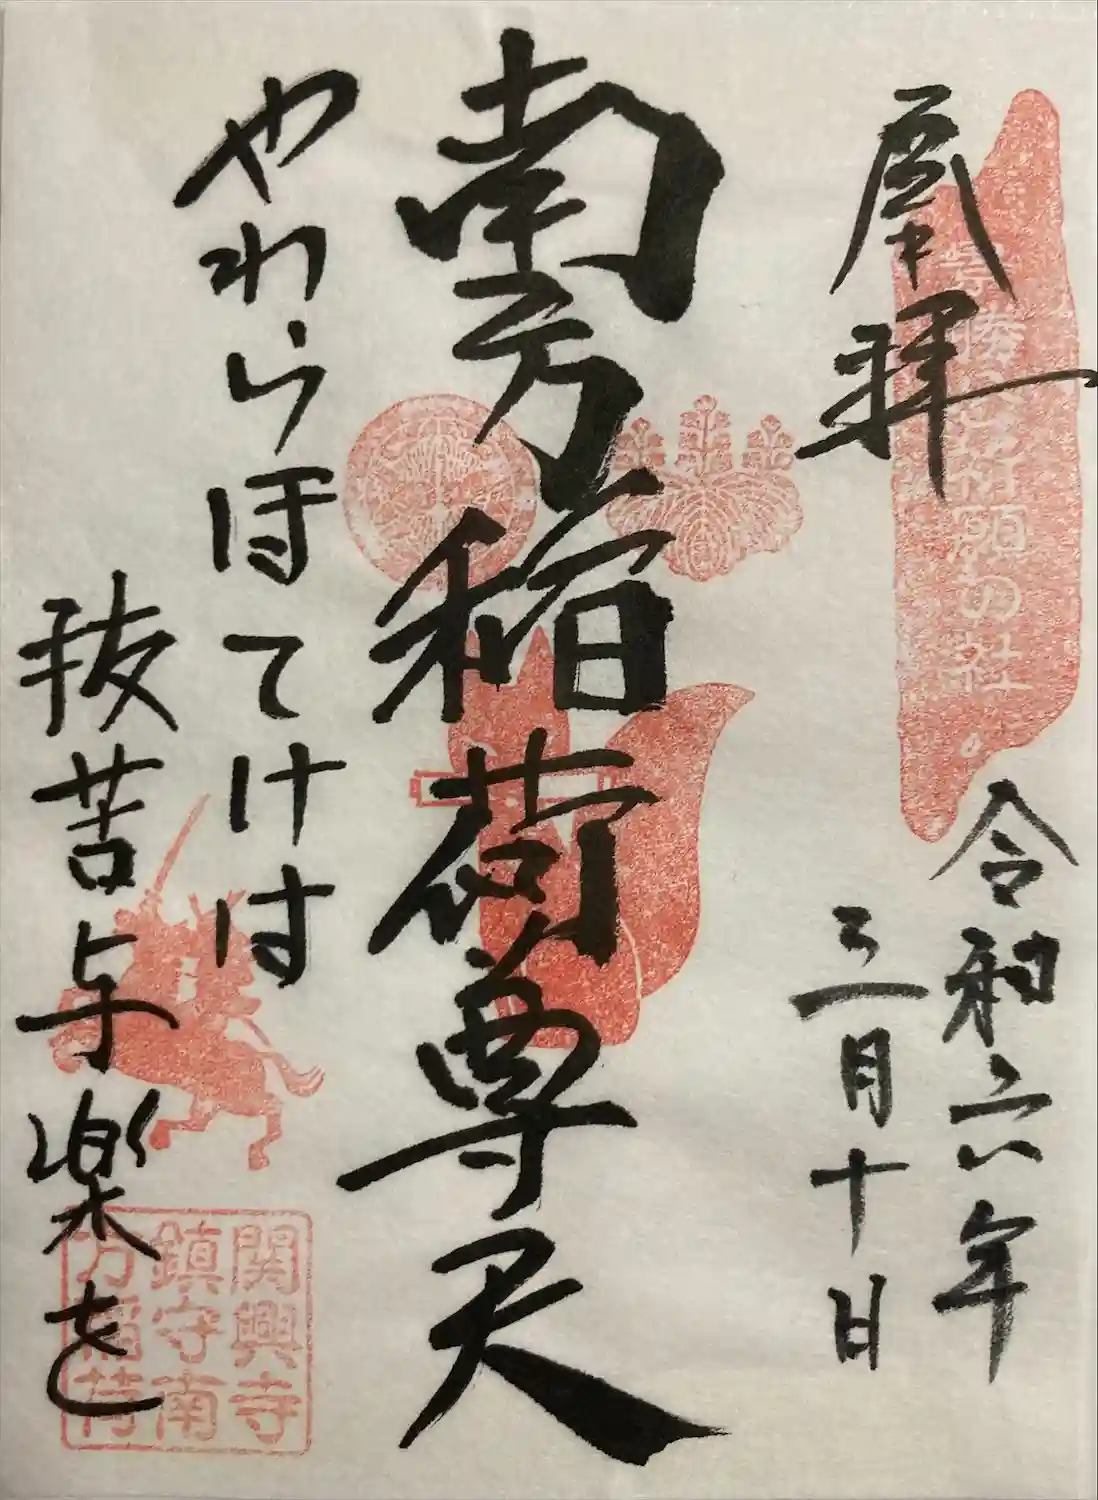 奉拝
祈願の社
令和六年
三月十日
南方稲荷尊天
やわらほてけは
抜苦与楽を
関興寺
鎮守南
方稲荷